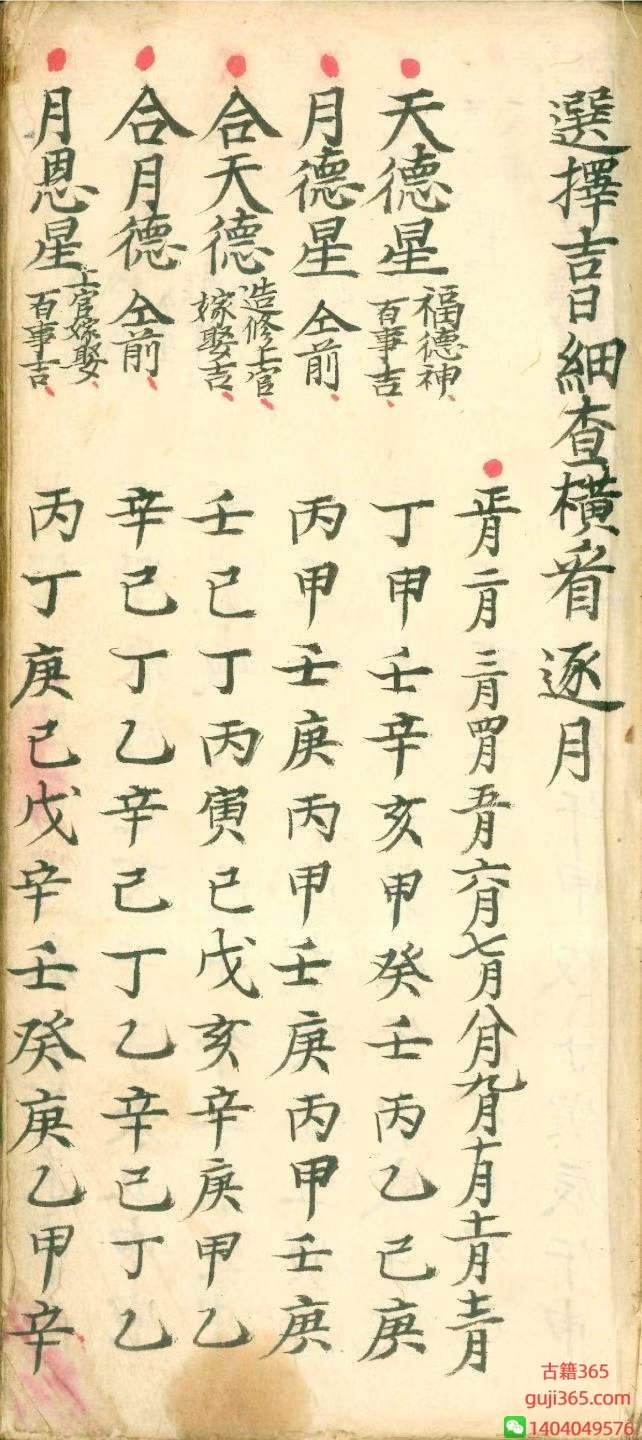 選擇吉日細查橫看逐月
正月二月三月四月五月六月七月八月九月十月十一月十二月
天德星 福德神 百事吉 丁甲壬辛亥甲癸壬丙乙己庚
月德星 仝前 丙甲壬庚丙甲壬庚丙甲壬庚
合天德 造修上官 嫁娶吉 壬巳丁丙寅己戊亥辛庚甲乙
合月德 仝前 辛己丁乙辛己丁乙辛己丁乙
月恩星 上官嫁娶 百事吉 丙丁庚己戊辛壬癸庚乙甲辛
古籍365
guji365.com
1404049576